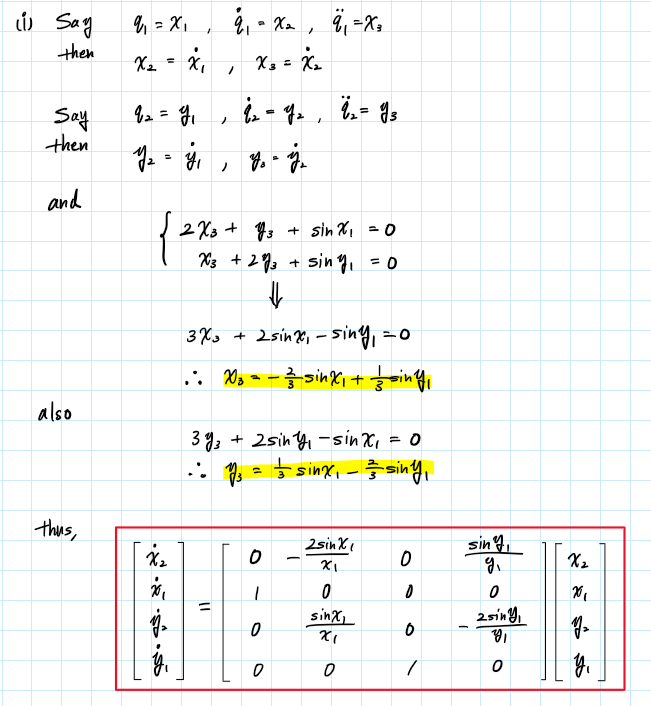 (i) Say q₁ = x₁ , q̇₁ = x₂ , q̈₁ = x₃
then x₂ = ẋ₁ , x₃ = ẋ₂
Say q₂ = y₁ , q̇₂ = y₂ , q̈₂ = y₃
then y₂ = ẏ₁ , y₃ = ẏ₂
and
{ 2x₃ + y₃ + sin x₁ = 0
x₃ + 2y₃ + sin y₁ = 0
⇓
3x₃ + 2sin x₁ - sin y₁ = 0
∴ x₃ = - 2/3 sin x₁ + 1/3 sin y₁
also
3y₃ + 2sin y₁ - sin x₁ = 0
∴ y₃ = 1/3 sin x₁ - 2/3 sin y₁
thus,
[ẋ₂] = [0 -2sin x₁/x₁ 0 sin y₁/y₁] [x₂]
[ẋ₁] [1 0 0 0] [x₁]
[ẏ₂] [0 sin x₁/x₁ 0 -2sin y₁/y₁] [y₂]
[ẏ₁] [0 0 1 0] [y₁]